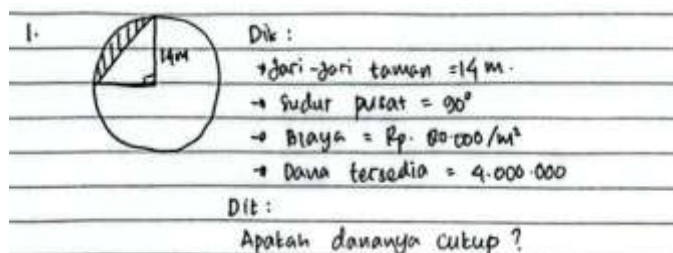 1.
14M
Dik :
→ Jari-Jari taman = 14 m.
→ Sudut pusat = 90°
→ Biaya = Rp. 80.000/m²
→ Dana tersedia = 4.000.000
Dit :
Apakah dananya cukup ?